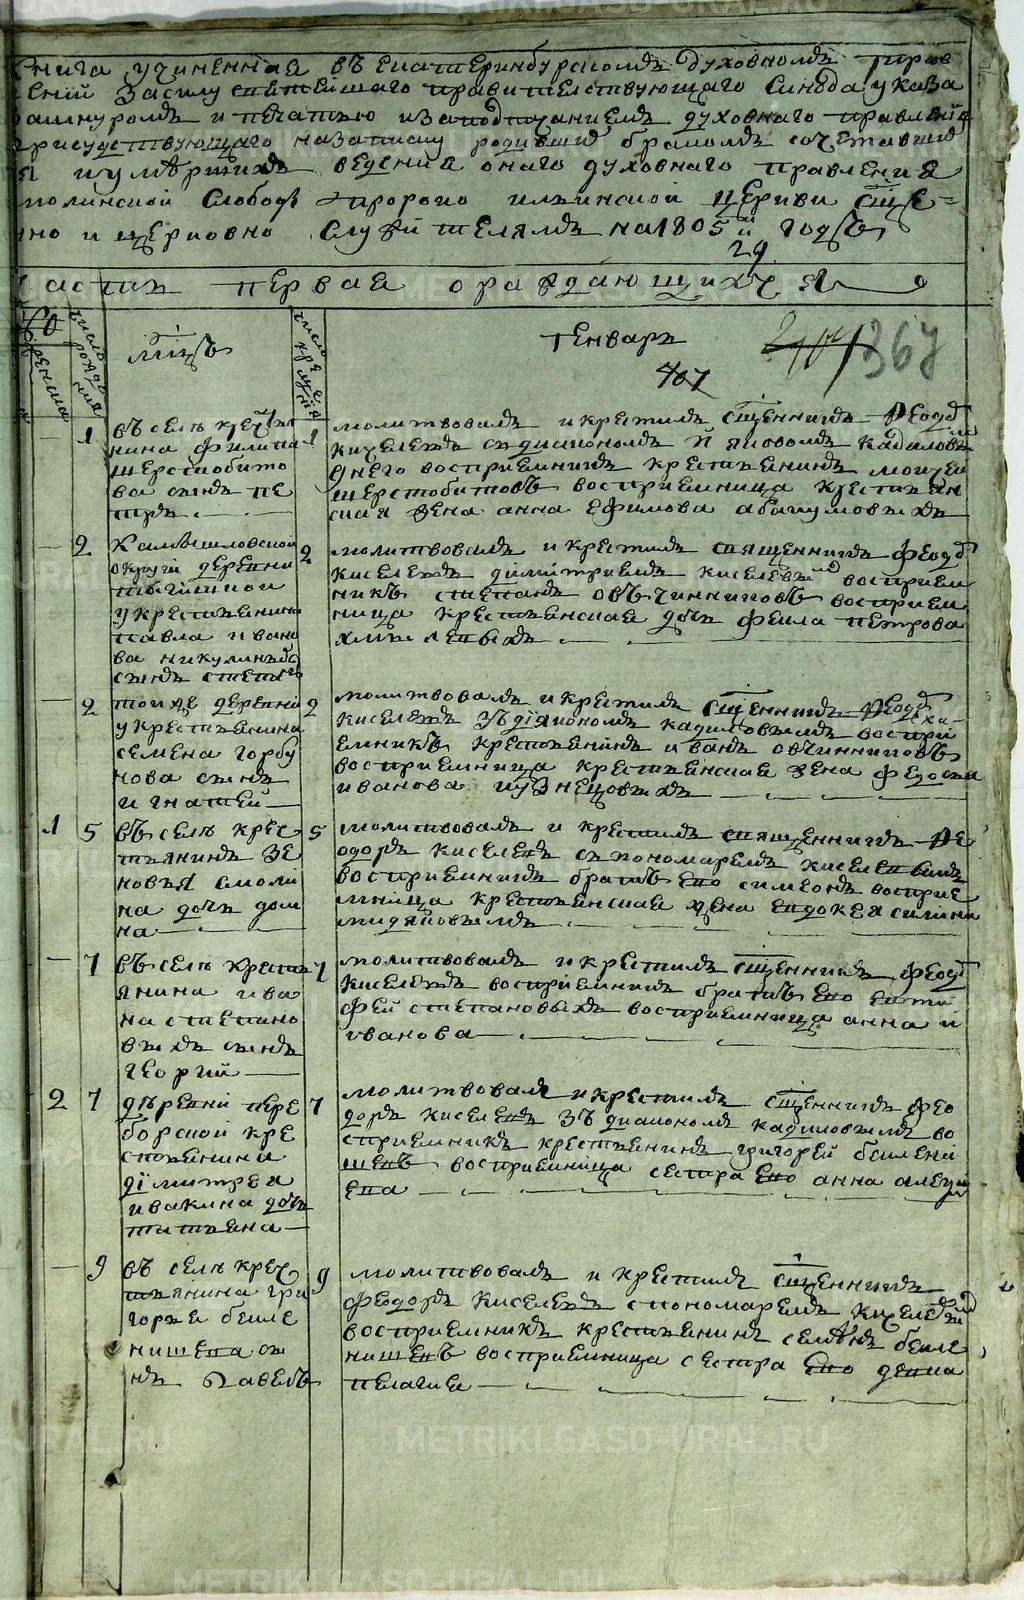 METRIKI.GASO-URAL.RU
книга учиненная въ екатеринбургскомъ духовномъ прав
ении засилу святейшаго правителствующаго синода указа
шнуромъ и печатью изаподписаниемъ духовнаго правления
присудствующаго назаписку родившие бракомъ сочетавшие
я иумершихъ ведения онаго духовнаго правления
молинской слободе пророко илиинской церкви сще=
нно и церковно служителямъ на 1805й годъ
29
часть первая ораждающихся
число рождения
мцъ
число крещения
генварь
367
407
1
въ селе крестья
нина филипа
шерстобито
ва сынъ пе
тръ
1
молитвовалъ и крестилъ сщенникъ Феодо
киселевъ съ диакономъ
у него восприемникъ крестьянинъ моисей
шерстобитовъ восприемница крестьян
ская жена анна ефимова абакумовыхъ
2
камышловской
округи деревни
у крестьянина
павла ивано
ва никулинъ
сынъ стефанъ
2
молитвовалъ и крестилъ священникъ феодо
киселевъ димитриемъ киселевым восприем
никъ степанъ овъчинниковъ восприем
ница крестьянская дочь фекла петрова
хмелевыхъ
2
тоя же деревни
у крестьянина
семена горбу
нова сынъ
игнатей
2
молитвовалъ и крестилъ сщенникъ Феодо
киселевъ зъ диякономъ кадиловымъ воспри
емникъ крестьянинъ иванъ овчинниковъ
восприемница крестьянская жена федосья
иванова кузнецовыхъ
1 5
въ селе крес
тьянинъ зе
новья смоли
на дочь дом
на
5
молитвовалъ и крестилъ священникъ Фе
одоръ киселевъ съ пономаремъ киселевымъ
восприемникъ братъ ево симеонъ восприе
мница крестьянская жена евдокея силина
7
въ селе кресть
янина ива
на степано
выхъ сынъ
георгий
7
молитвовалъ и крестилъ сщенникъ феодо
киселевъ восприемникъ братъ ево евти
фей степановыхъ восприемница анна и
ванова
2 7
деревни пере
борской кре
стьянина
димитрея
ивакина дочь
татьяна
7
молитвовалъ и крестилъ сщенникъ фео
доръ киселевъ зъ диакономъ кадиловымъ во
сприемникъ крестьянинъ григорей бекleни
шевъ восприемница сестра ево анна алекси
ева
9
въ селе крес
тьянина гри
горья бекле
нишева сы
нъ Павелъ
9
молитвовалъ и крестилъ сщенникъ
феодоръ киселевъ с пономаремъ киселевым
восприемникъ крестьянинъ семенъ бекле
нишевъ восприемница сестра ево девка
пелагия
METRIKI.GASO-URAL.RU
METRIKI.GASO-URAL.RU